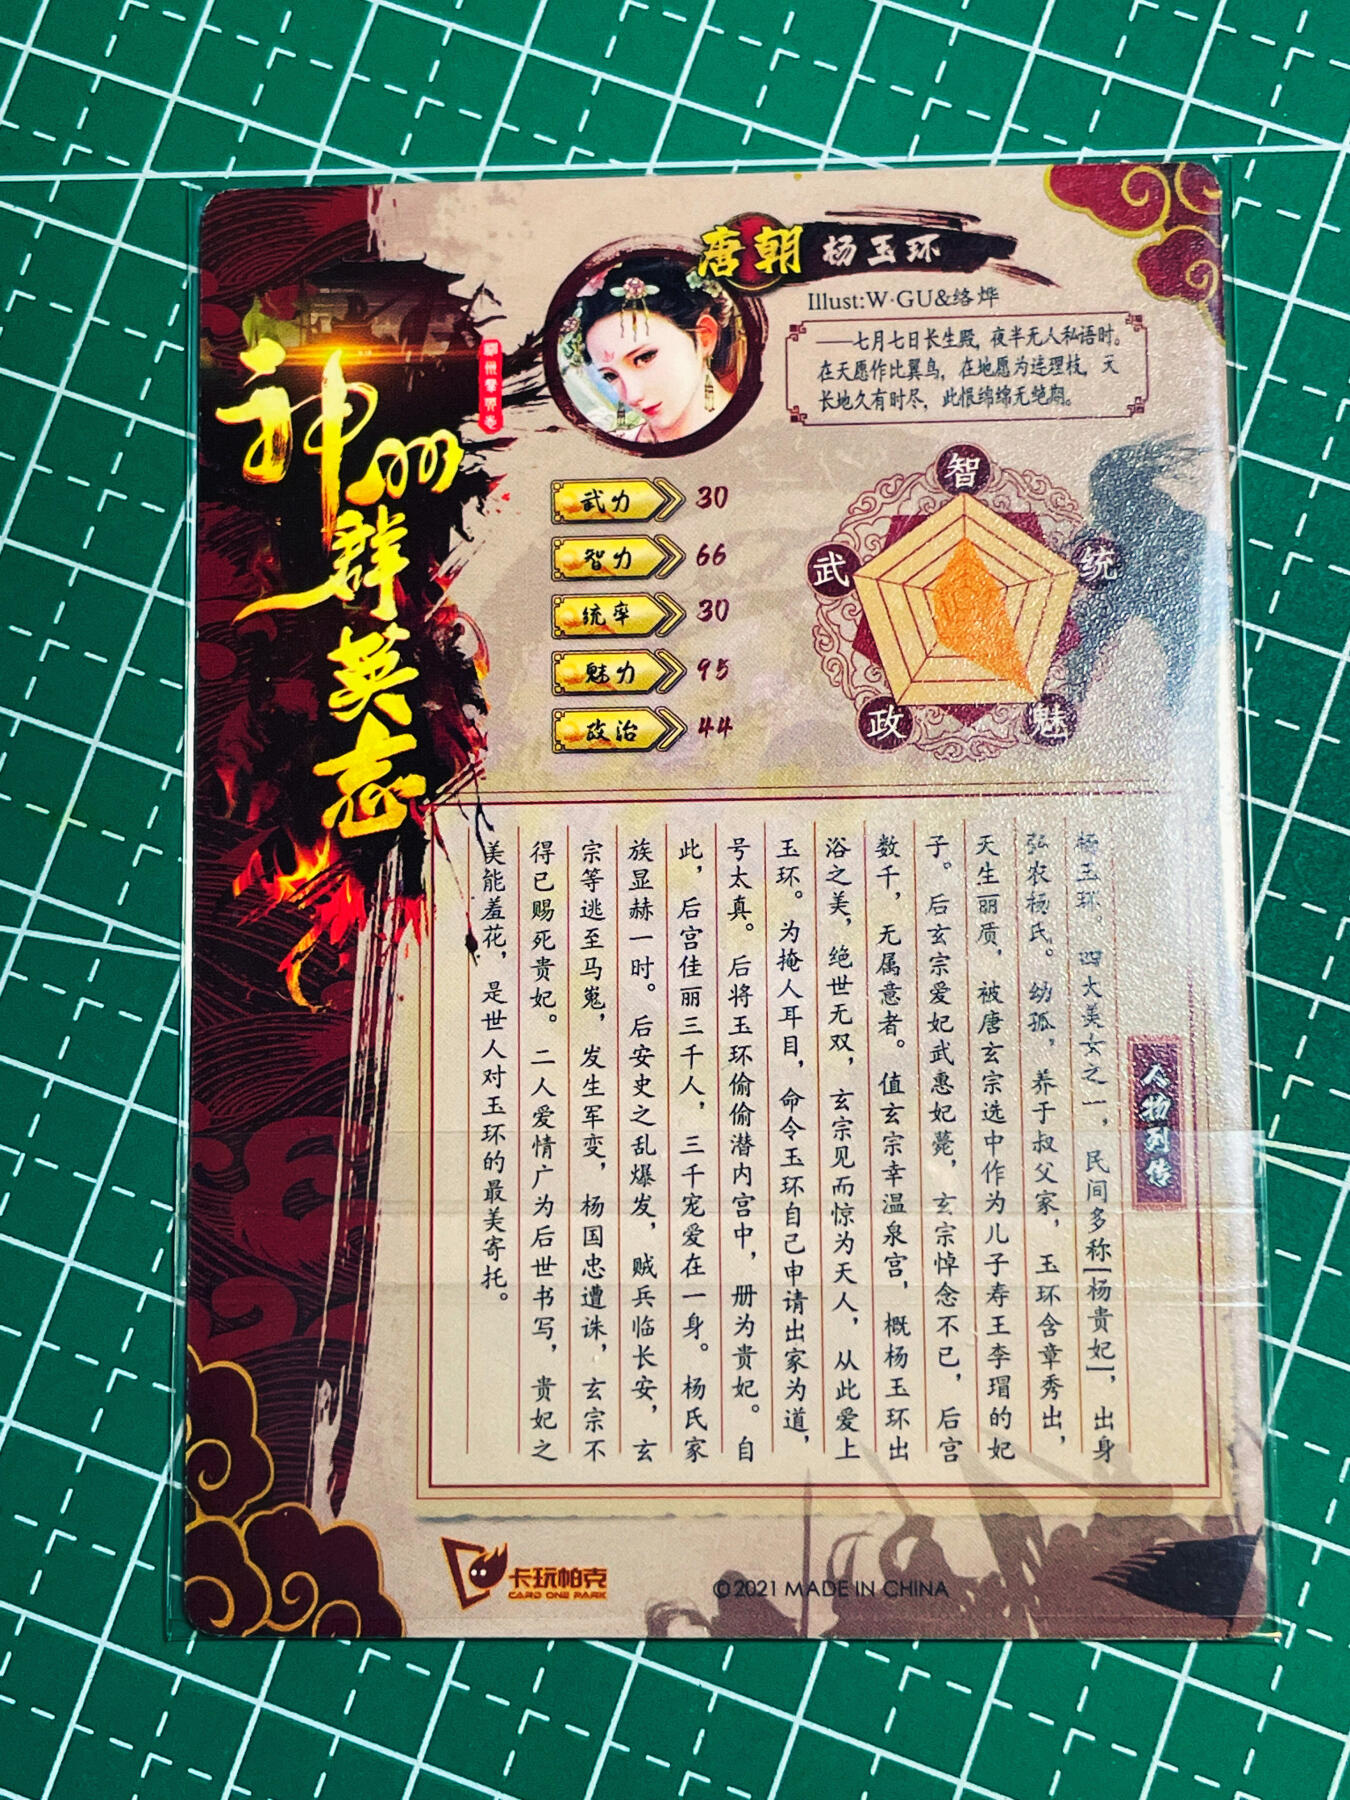 神州群英志
唐朝 杨玉环
Illust:W·GU&络烨
——七月七日长生殿，夜半无人私语时。
在天愿作比翼鸟，在地愿为连理枝，天
长地久有时尽，此恨绵绵无绝期。
武力 30
智力 66
统率 30
魅力 95
政治 44
智
武
统
政
魅
人物列传
杨玉环。四大美女之一，民间多称「杨贵妃」，出身
弘农杨氏。幼孤，养于叔父家，玉环含章秀出，
天生丽质，被唐玄宗选中作为儿子寿王李瑁的妃
子。后玄宗爱妃武惠妃薨，玄宗悼念不已，后宫
数千，无属意者。值玄宗幸温泉宫，概杨玉环出
浴之美，绝世无双，玄宗见而惊为天人，从此爱上
玉环。为掩人耳目，命令玉环自己申请出家为道，
号太真。后将玉环偷偷潜内宫中，册为贵妃。自
此，后宫佳丽三千人，三千宠爱在一身。杨氏家
族显赫一时。后安史之乱爆发，贼兵临长安，玄
宗等逃至马嵬，发生军变，杨国忠遭诛，玄宗不
得已赐死贵妃。二人爱情广为后世书写，贵妃之
美能羞花，是世人对玉环的最美寄托。
卡玩帕克
CARD ONE PARK
©2021 MADE IN CHINA